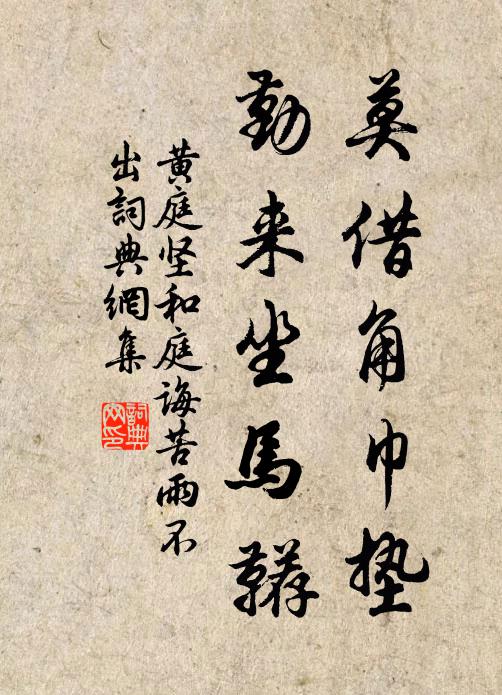 莫借角巾墊
勤来坐馬韉
黄庭坚和庭誨苦雨不
出詞典網集
詞典网印